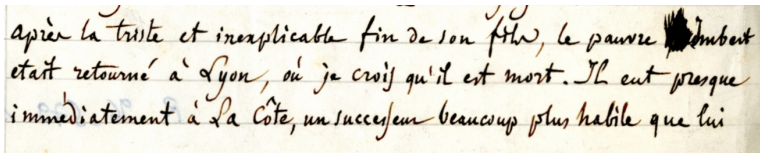 après la triste et inexplicable fin de son fils, le pauvre Imbert
etait retourné à Lyon, où je crois qu'il est mort. Il eut presque
immédiatement à La Côte, un successeur beaucoup plus habile que lui